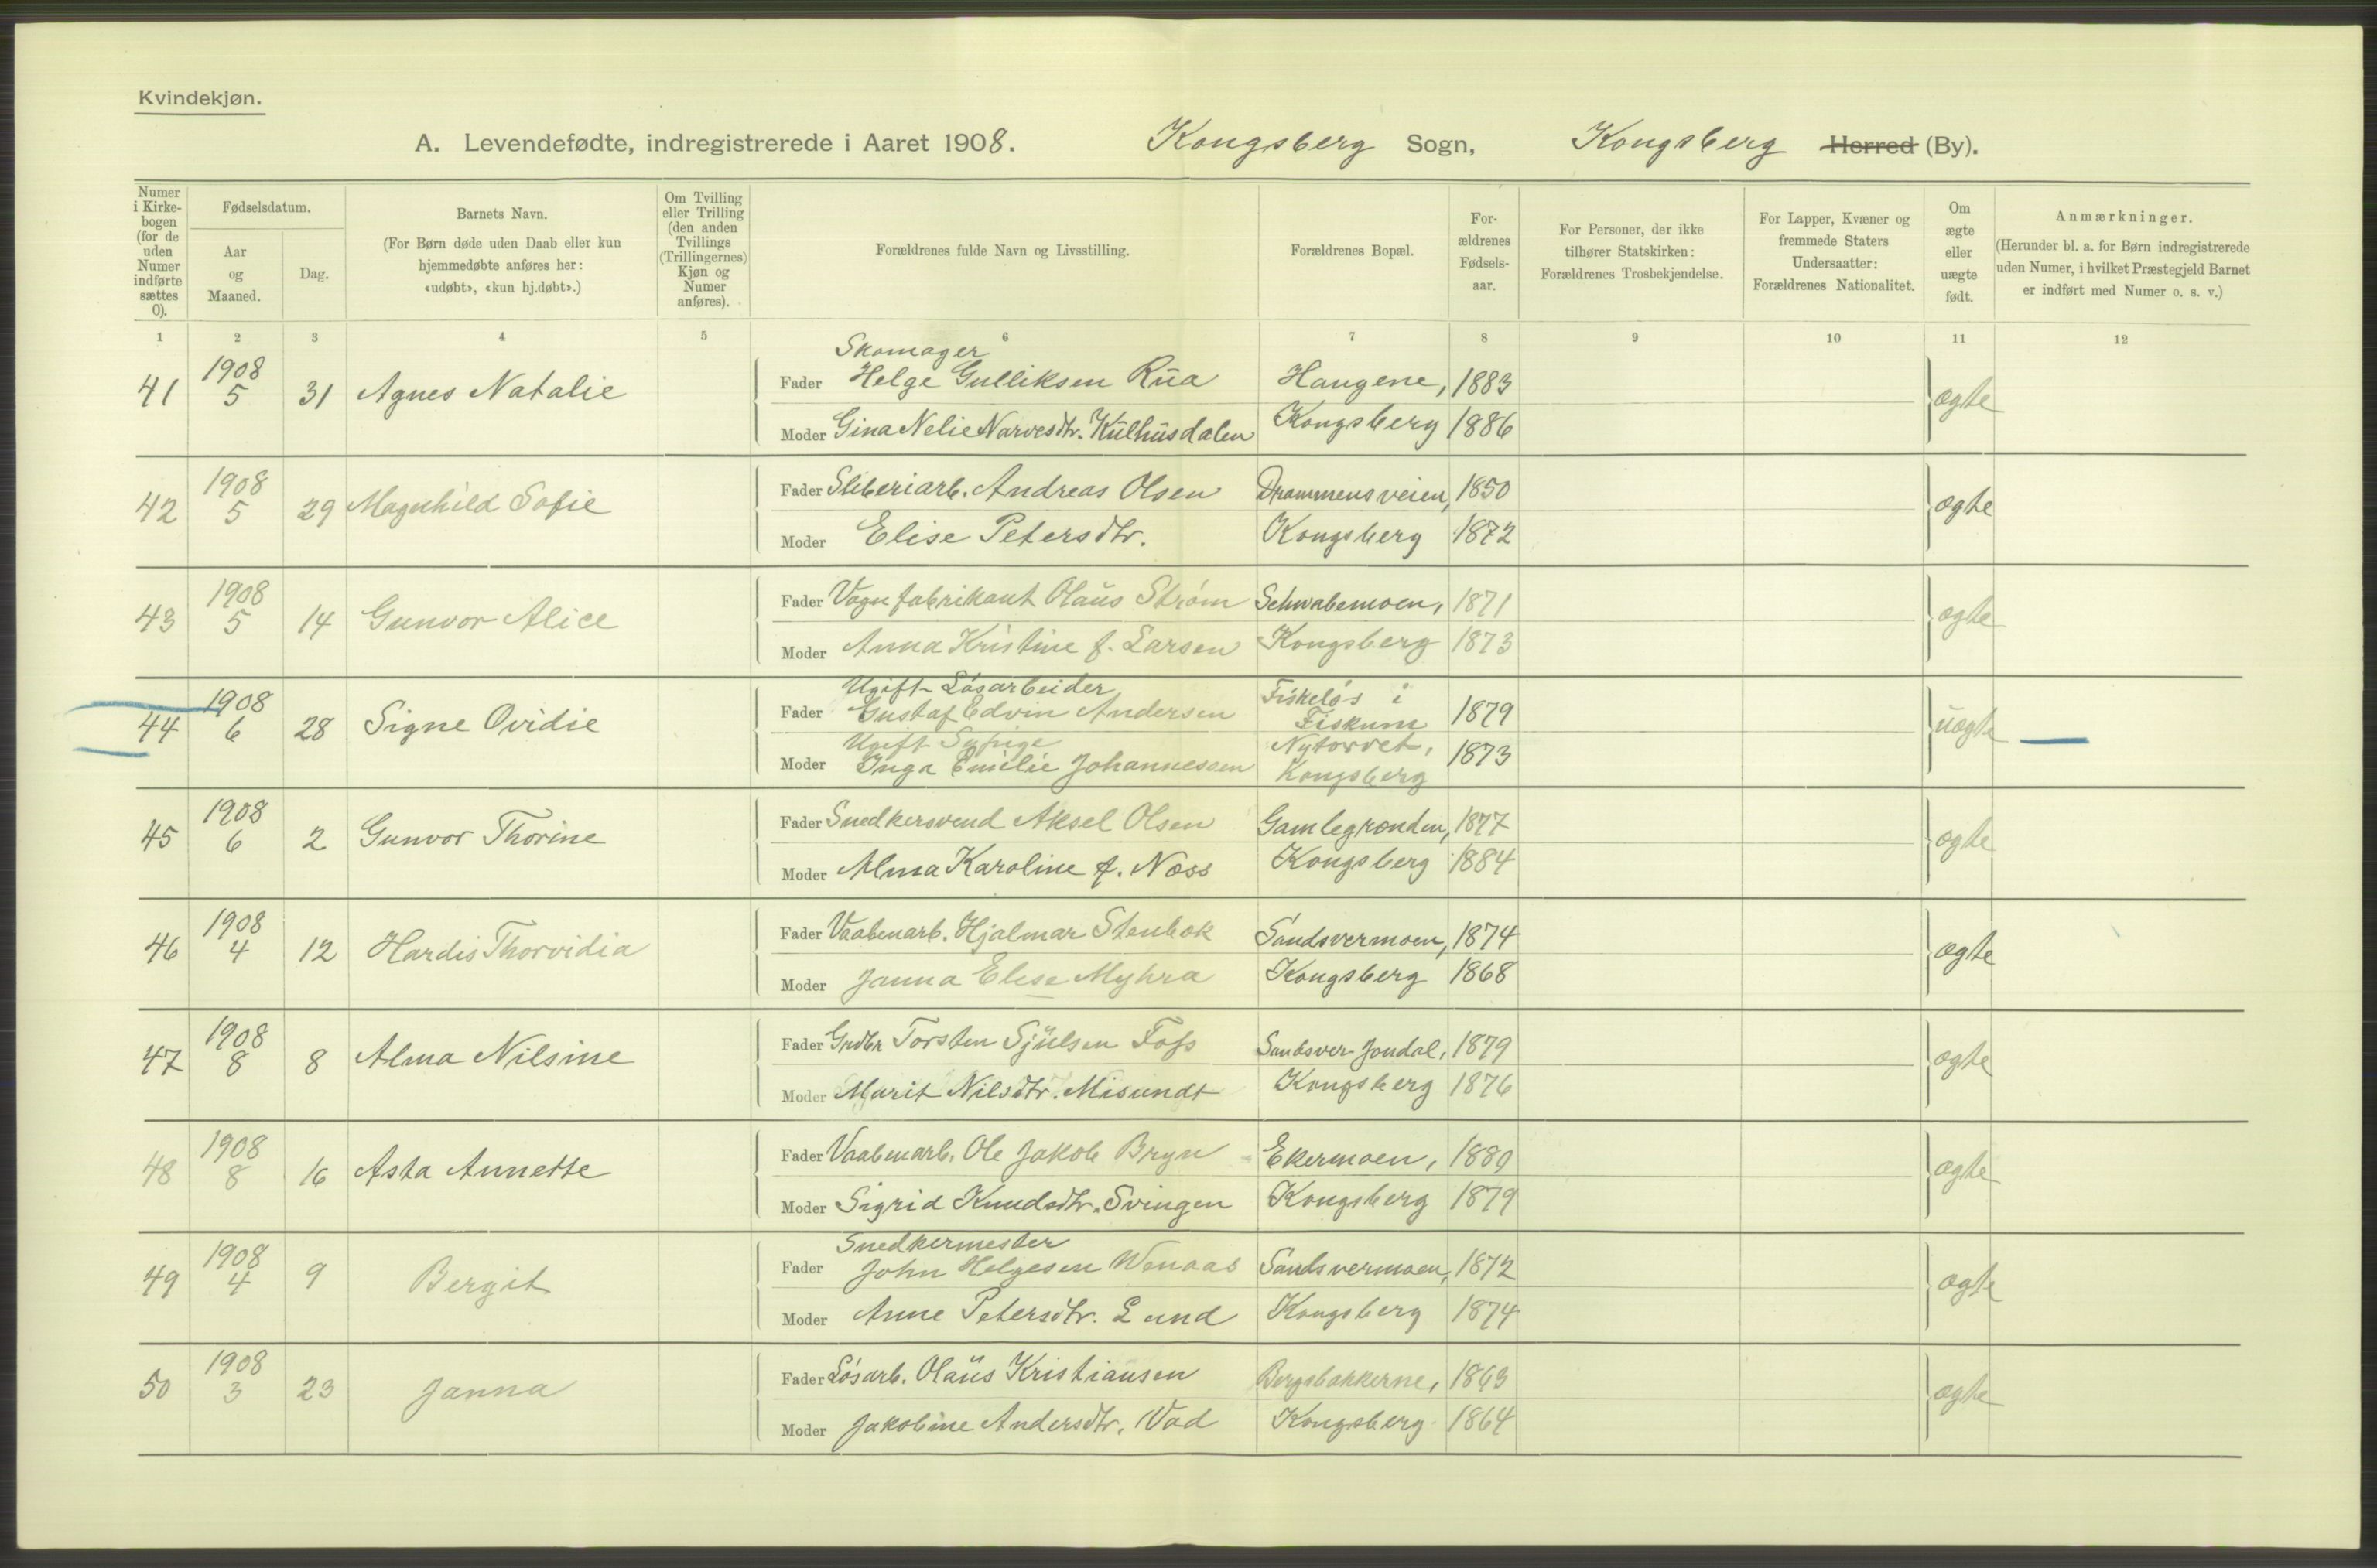 Kvindekjøn.
A. Levendefødte, indregistrerede i Aaret 1908. Kongsberg Sogn, Kongsberg Herred (By).
Numer i Kirkebogen (for de uden Numer indførte sættes 0).
Fødselsdatum.
Aar og Maaned.
Dag.
Barnets Navn.
(For Børn døde uden Daab eller kun hjemmedøbte anføres her: «udøbt», «kun hj.døbt».)
Om Tvilling eller Trilling (den anden Tvillings (Trillingernes) Kjøn og Numer anføres).
Forældrenes fulde Navn og Livsstilling.
Forældrenes Bopæl.
Forældrenes Fødselsaar.
For Personer, der ikke tilhører Statskirken: Forældrenes Trosbekjendelse.
For Lapper, Kvæner og fremmede Staters Undersaatter: Forældrenes Nationalitet.
Om ægte eller uægte født.
Anmærkninger.
(Herunder bl. a. for Børn indregistrerede uden Numer, i hvilket Præstegjeld Barnet er indført med Numer o. s. v.)
1 2 3 4 5 6 7 8 9 10 11 12
Skomager
41 1908 5 31 Agnes Natalie Fader Helge Gulliksen Rua Haugene, 1883 ægte
Moder Gina Nelie Narvesdtr. Kulhusdalen Kongsberg 1886
42 1908 5 29 Magnhild Sofie Fader Sliberiarb. Andreas Olsen Drammensveien, 1850 ægte
Moder Elise Petersdtr. Kongsberg 1872
43 1908 5 14 Gunvor Alice Fader Vognfabrikant Olaus Strøm Schwabemoen, 1871 ægte
Moder Anna Kristine f. Larsen Kongsberg 1873
Ugift Løsarbeider Fiskeløs i
44 1908 6 28 Signe Ovidie Fader Gustaf Edvin Andersen Fiskum 1879 uægte
Ugift Sypige Nytorvet,
Moder Inga Emilie Johannessen Kongsberg 1873
45 1908 6 2 Gunvor Thorine Fader Snedkersvend Aksel Olsen Gamlegrænden, 1877 ægte
Moder Alma Karoline f. Næss Kongsberg 1884
46 1908 4 12 Hardis Thorvidia Fader Vaabenarb. Hjalmar Stenbek Sandsvermoen, 1874 ægte
Moder Janna Elise Myhra Kongsberg 1868
47 1908 8 8 Alma Nilsine Fader Grdbr Torsten Sjulsen Foss Sandsver-Jondal, 1879 ægte
Moder Marit Nilsdtr. Misundt Kongsberg 1876
48 1908 8 16 Asta Annette Fader Vaabenarb. Ole Jakob Bryn Ekermoen, 1880 ægte
Moder Sigrid Knudsdtr. Svingen Kongsberg 1879
Snedkermester
49 1908 4 9 Bergit Fader John Helgesen Wenaas Sandsvermoen, 1872 ægte
Moder Anne Petersdtr. Lund Kongsberg 1874
50 1908 3 23 Janna Fader Løsarb. Olaus Kristiansen Bergsbakkerne, 1863 ægte
Moder Jakobine Andersdtr. Vad Kongsberg 1864